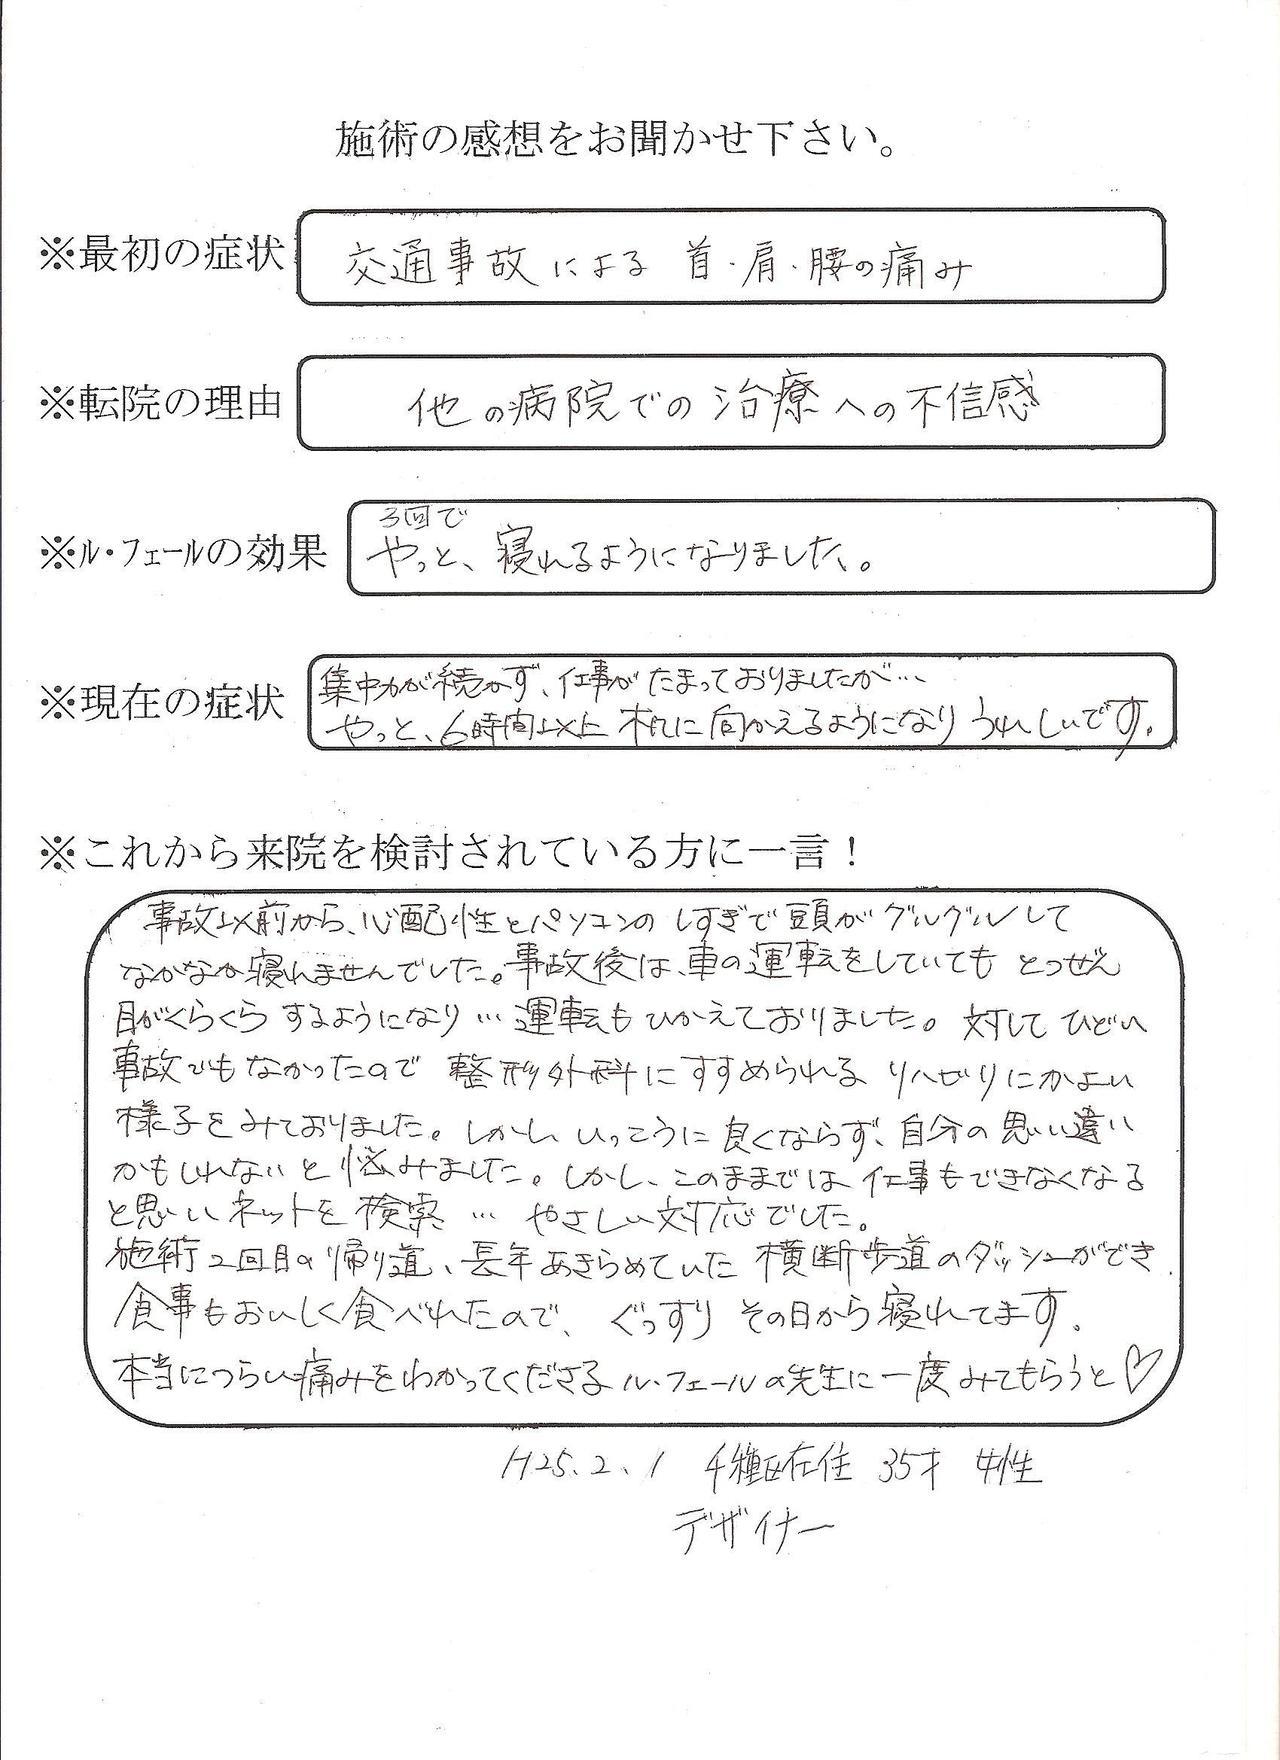 施術の感想をお聞かせ下さい。
※最初の症状
交通事故による 首・肩・腰の痛み
※転院の理由
他の病院での治療への不信感
※ル・フェールの効果
3回で
やっと、寝れるようになりました。
※現在の症状
集中力が続かず、仕事がたまっておりましたが…
やっと、6時間以上 机に向かえるようになり うれしいです。
※これから来院を検討されている方に一言！
事故以前から、心配性とパソコンのしすぎで頭がグルグルして
なかなか寝れませんでした。事故後は、車の運転をしていても とつぜん
目がくらくらするようになり…運転もひかえておりました。対して ひどい
事故でもなかったので 整形外科にすすめられる リハビリにかよい
様子をみておりました。しかし いっこうに良くならず、自分の思い違い
かもしれないと悩みました。しかし、このままでは 仕事もできなくなる
と思い ネットを検索 … やさしい対応でした。
施術2回目の帰り道、長年あきらめていた 横断歩道のダッシュができ
食事もおいしく食べれたので、ぐっすり その日から寝れてます。
本当につらい痛みをわかってくださる ル・フェールの先生に一度 みてもらうと♡
H25.2.1 千種区在住 35才 女性
デザイナー